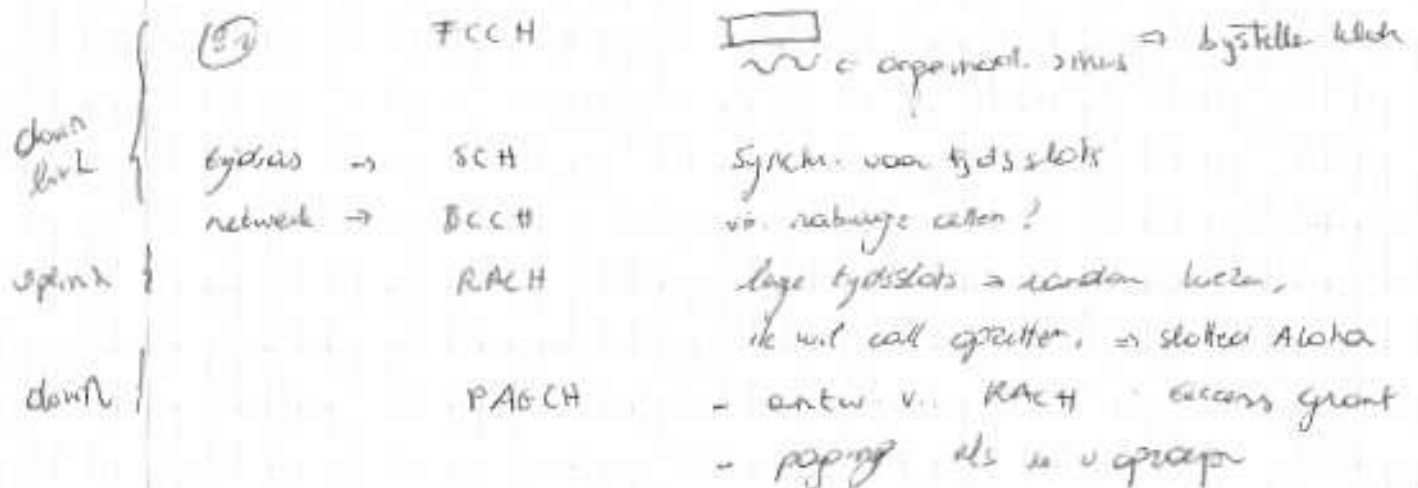 FCCH ⇒ bijstellen klok
down
link
tijdsas → SCH Synchr. voor tijdsslots
netwerk → BCCH naburige cellen?
uplink RACH lege tijdsslots → random kiezen,
ik wil call opzetten. ⇒ slotted Aloha
down PAGCH - antw. v. RACH access grant
- paging als